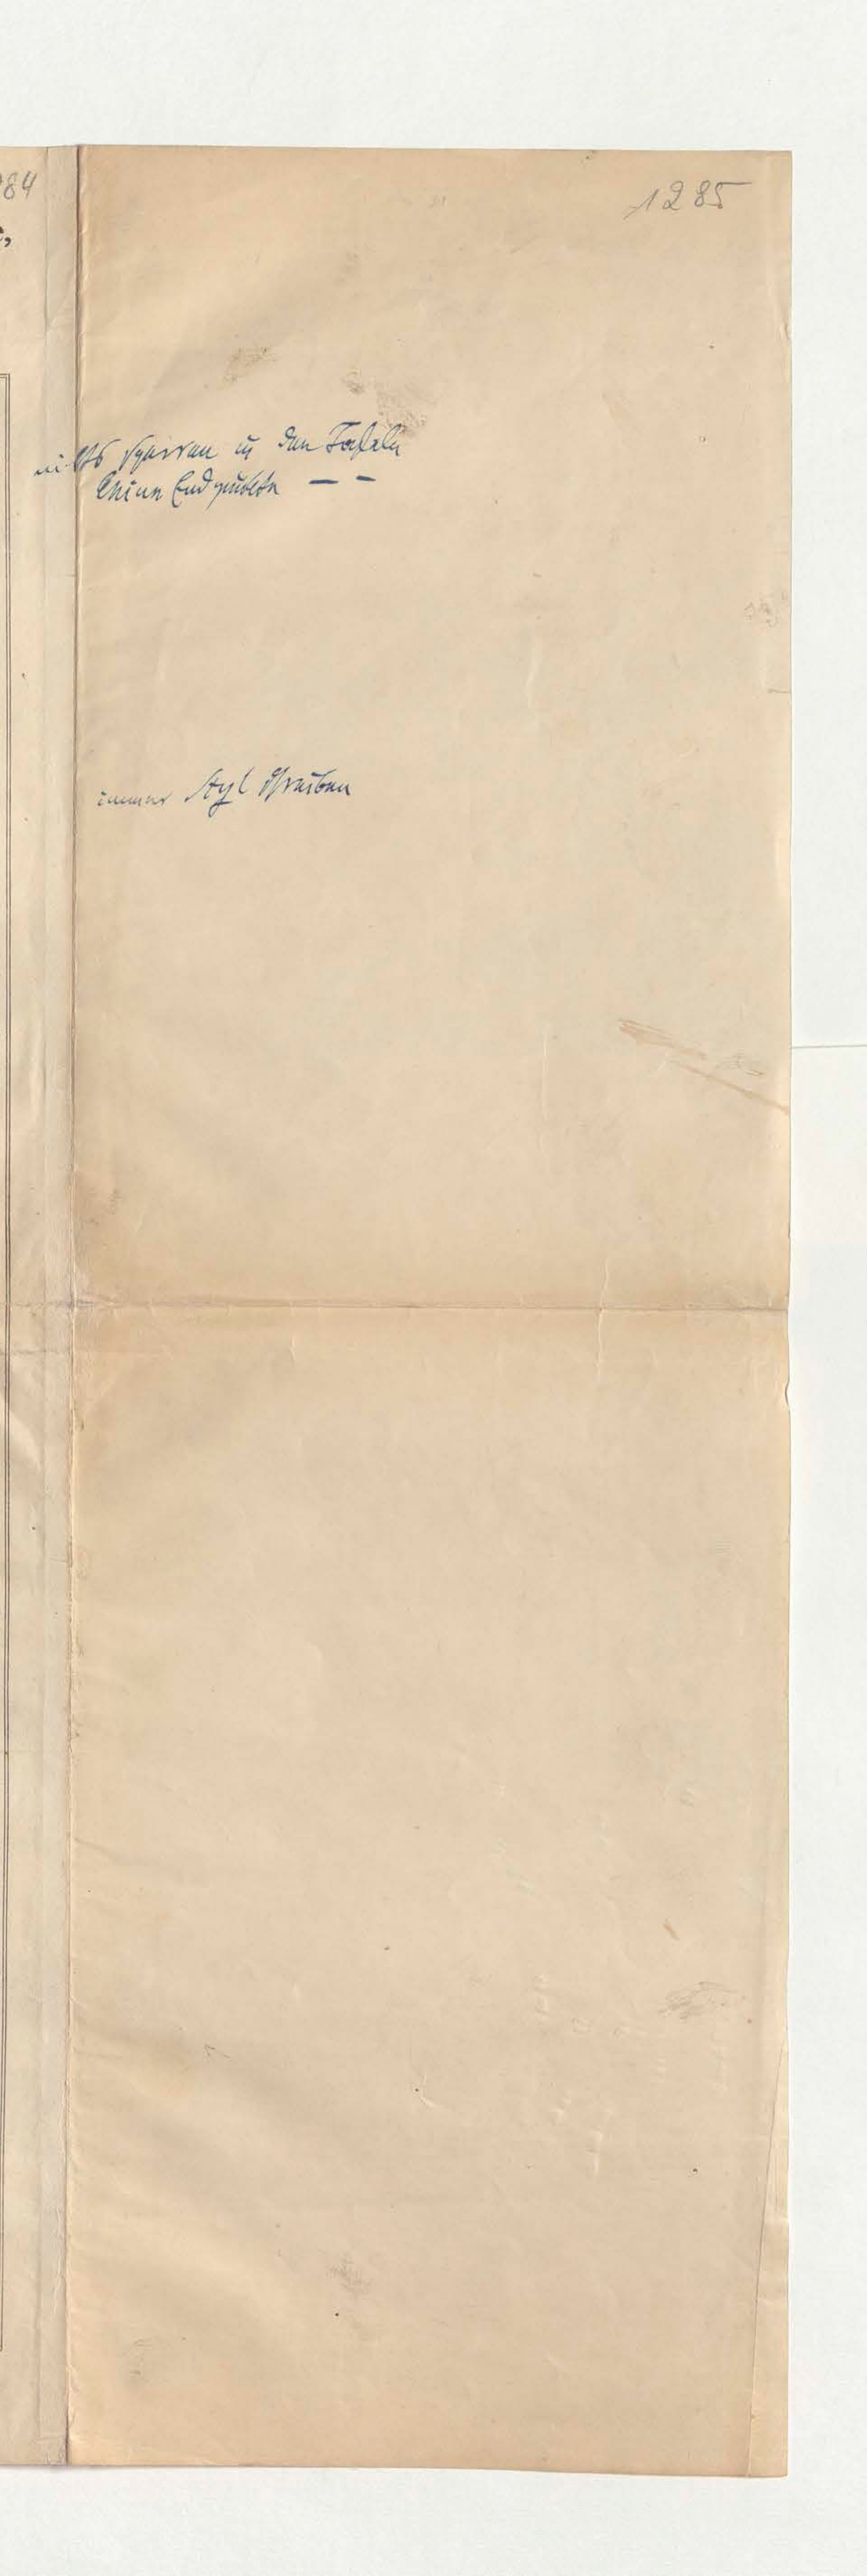 84
1285
nichts sperren in den Tafeln
keine Endpunkte — —
immer Styl schreiben